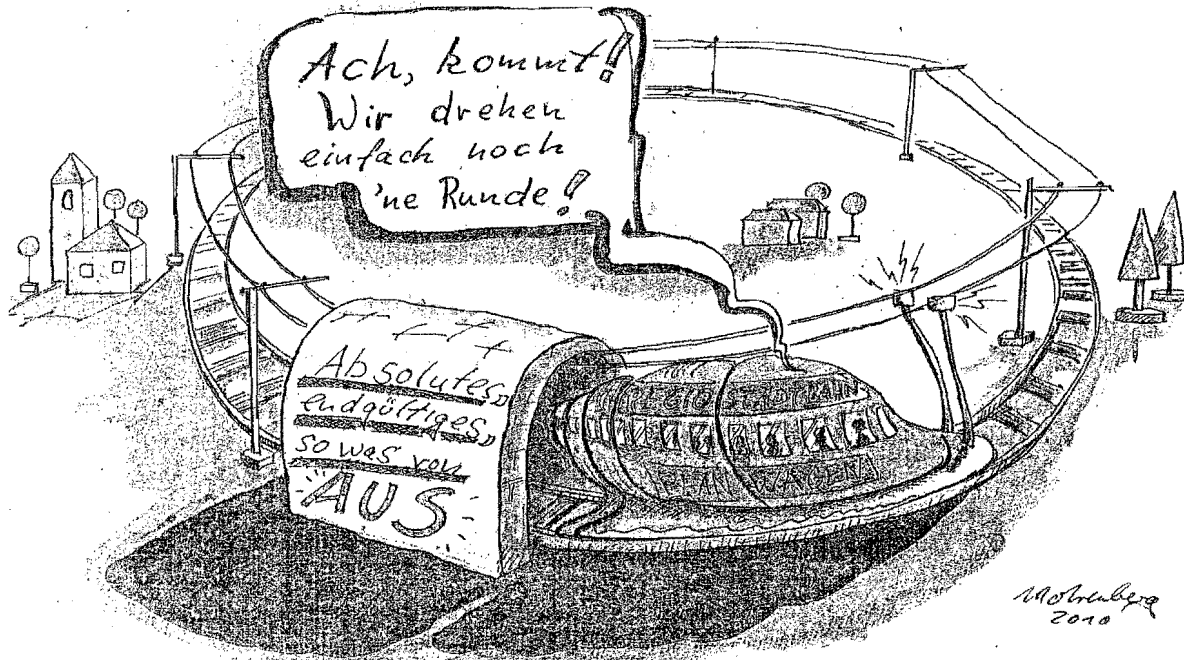 Ach, kommt!
Wir drehen
einfach noch
'ne Runde!
Absolutes,
endgültiges,
so was von
AUS
REGIOSTADTBAHN
PLANWAGEN 1
2010